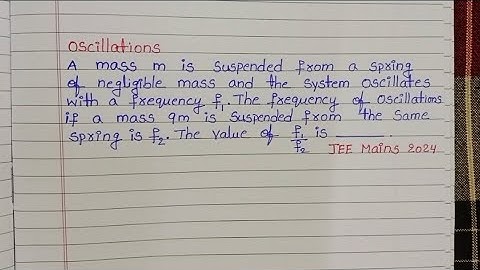 Oscillations
A mass m is suspended from a spring
of negligible mass and the system oscillates
with a frequency f₁. The frequency of oscillations
if a mass 9m is suspended from the same
spring is f₂. The value of f₁/f₂ is ______.
JEE Mains 2024